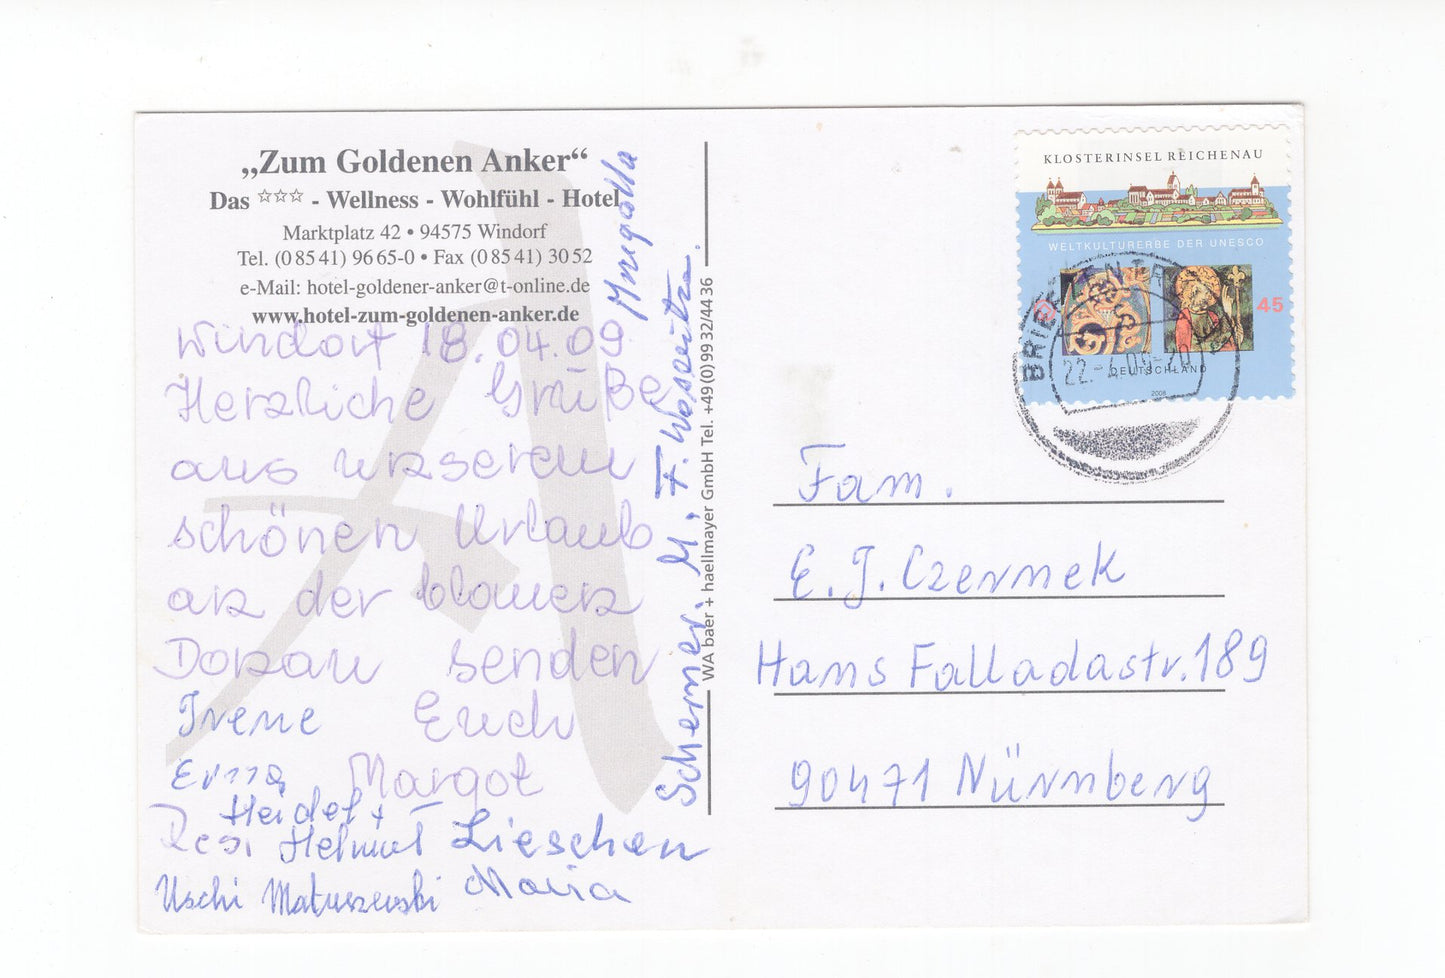 „Zum Goldenen Anker“
Das ☆☆☆ - Wellness - Wohlfühl - Hotel
Marktplatz 42 • 94575 Windorf
Tel. (0 85 41) 96 65-0 • Fax (0 85 41) 30 52
e-Mail: hotel-goldener-anker@t-online.de
www.hotel-zum-goldenen-anker.de
Windorf 18.04.09.
Herzliche Grüße
aus unserem
schönen Urlaub
an der blauen
Donau senden
Irene Euch
Erna Margot
Heidel +
Resi Helmut Lieschen
Uschi Matuszewski Maria
M. F.
WA baer + haellmayer GmbH Tel. +49(0)99 32/44 36
KLOSTERINSEL REICHENAU
WELTKULTURERBE DER UNESCO
45
DEUTSCHLAND
2008
BRIEFZENTR
22.-4.09-20
Fam.
E. J. Czermek
Hans Falladastr. 189
90471 Nürnberg